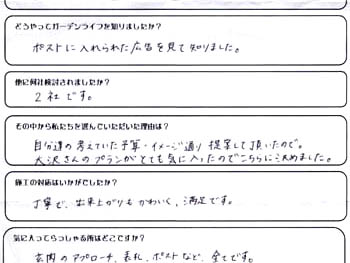 どうやってガーデンライフを知りましたか？
ポストに入れられた広告を見て知りました。
他に何社検討されましたか？
2社です。
その中から私たちを選んでいただいた理由は？
自分達の考えていた予算・イメージ通り提案して頂いたので。
大沢さんのプランがとても気に入ったのでこちらに決めました。
施工の対応はいかがでしたか？
丁寧で、出来上がりもかわいく、満足です。
気に入ってらっしゃる所はどこですか？
玄関のアプローチ、表札、ポストなど、全てです。